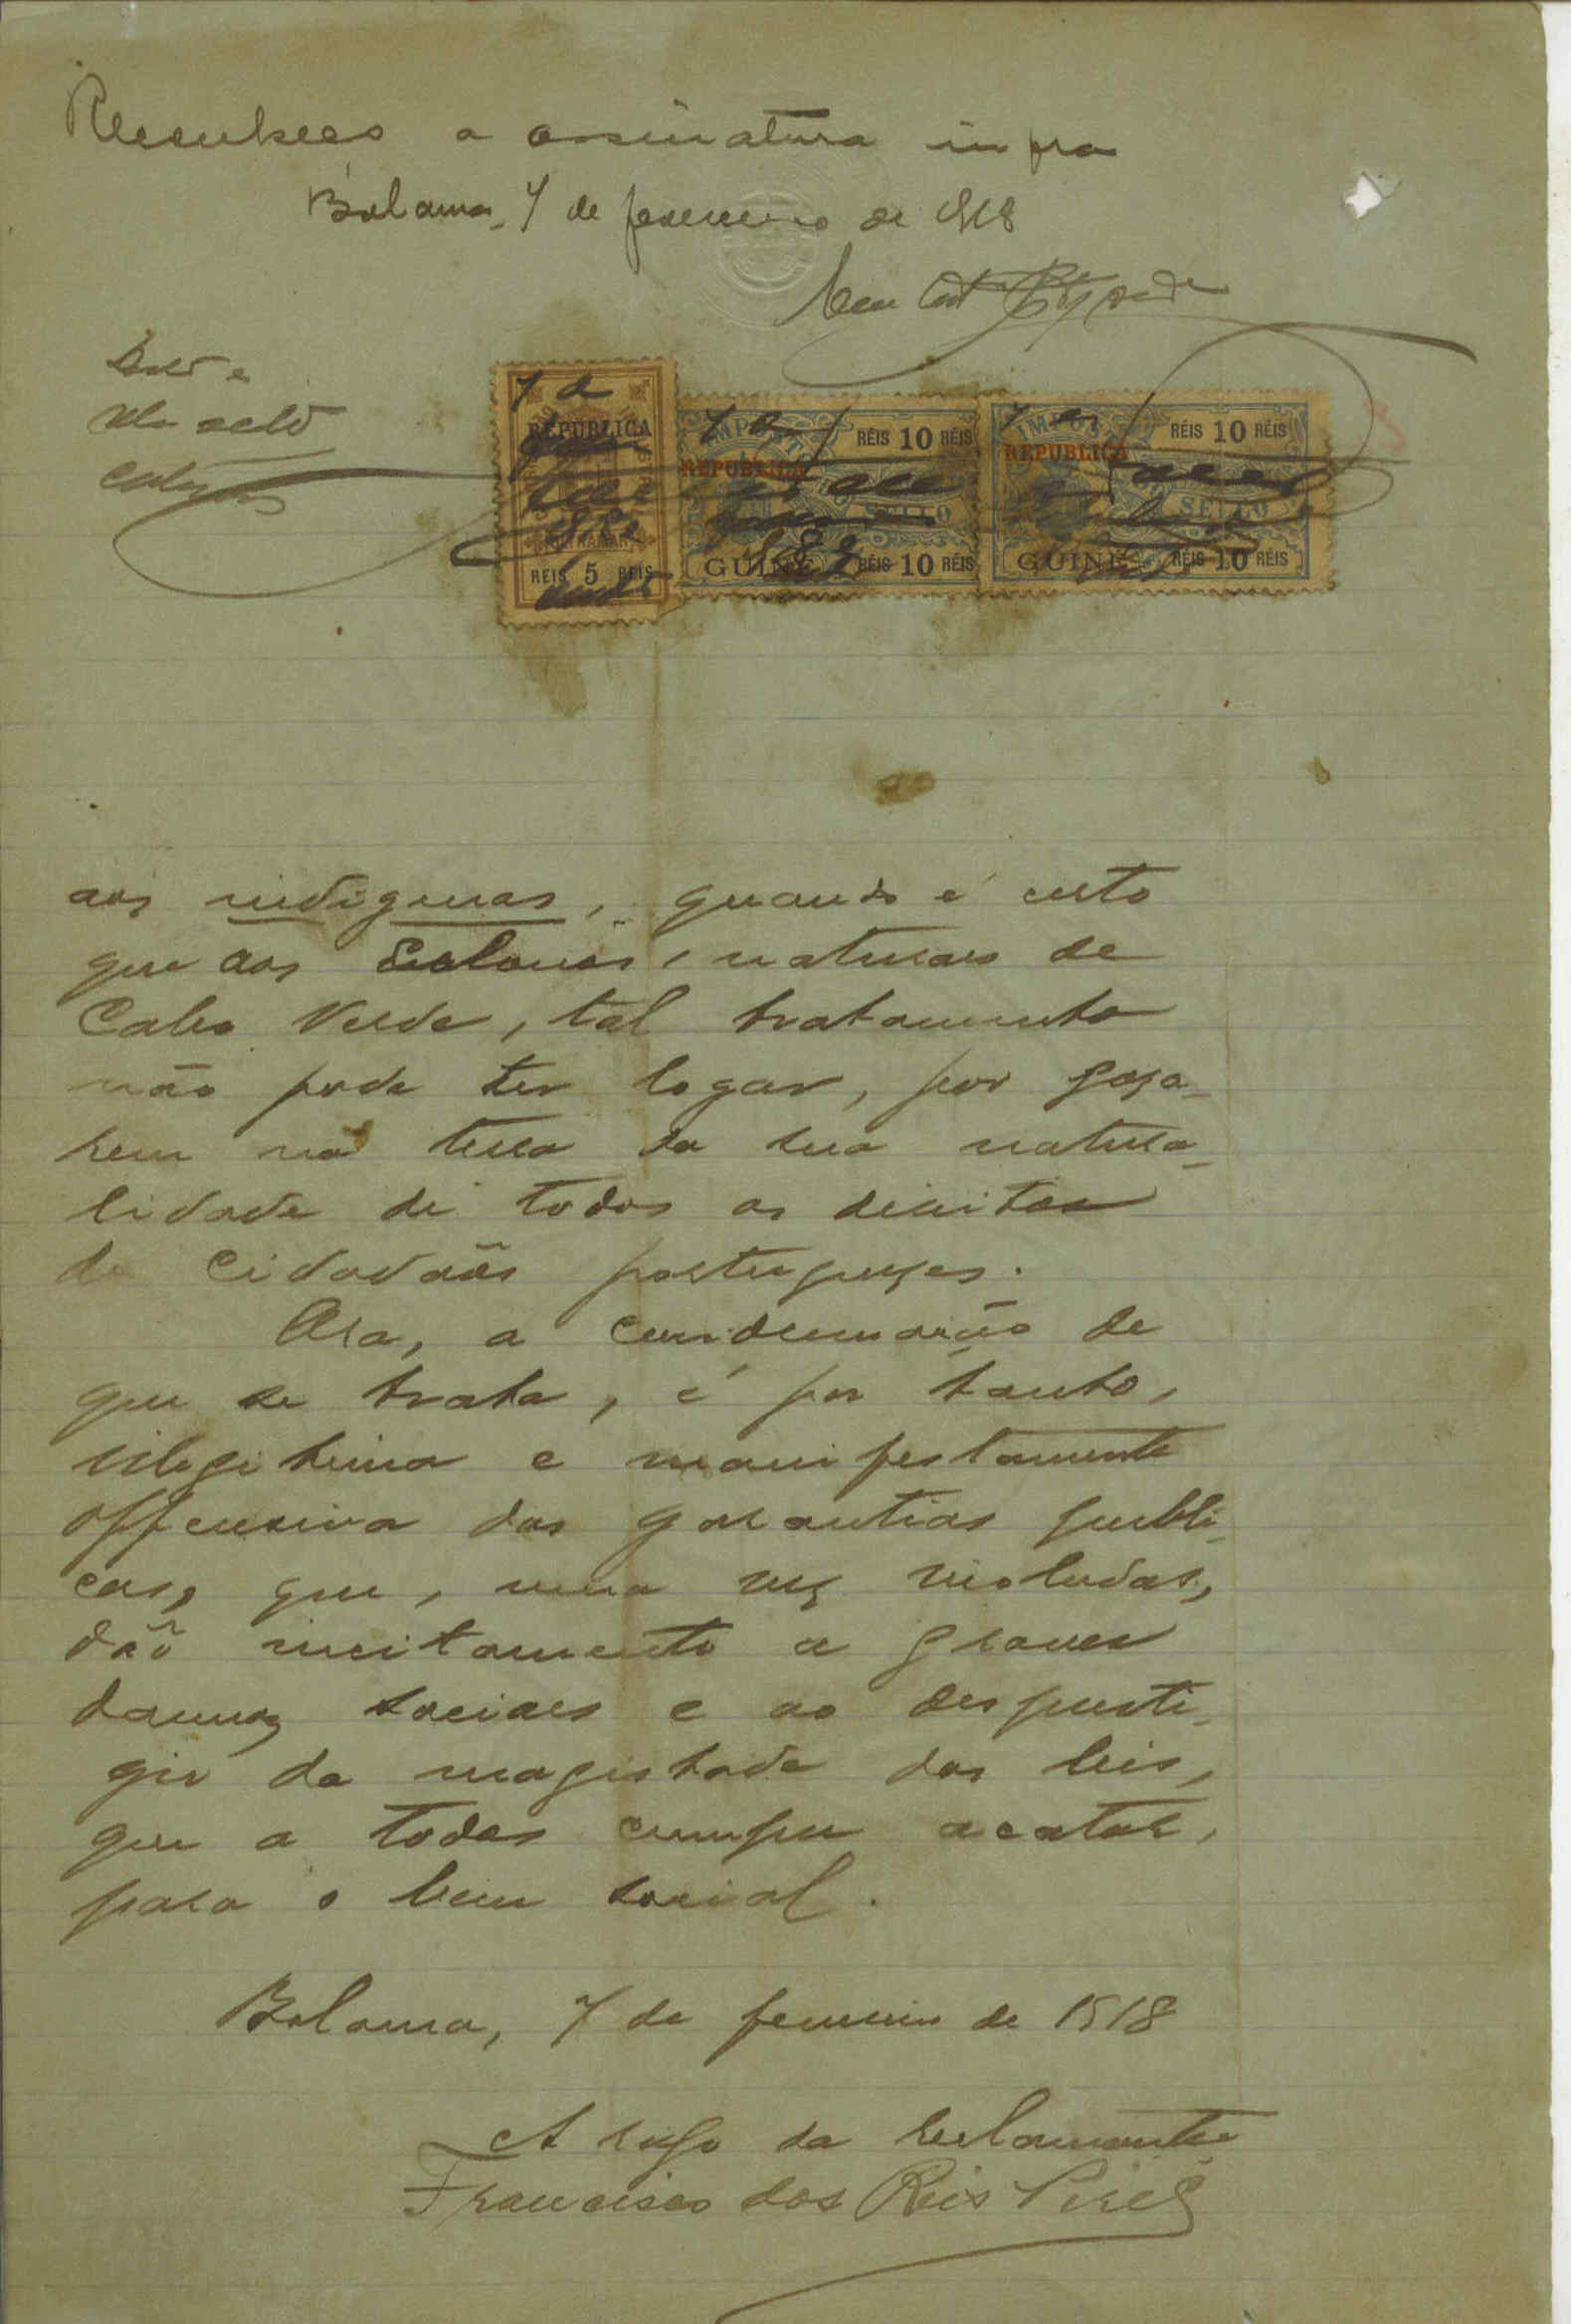 Reconheço a assinatura infra
Bolama, 7 de fevereiro de 1918
sello
7 de
REPUBLICA
REIS 5 REIS
7 de
IMPOSTO
RÉIS 10 RÉIS
REPUBLICA
SELLO
GUINÉ RÉIS 10 RÉIS
7 de
IMPOSTO
RÉIS 10 RÉIS
REPUBLICA
SELLO
GUINÉ RÉIS 10 RÉIS
aos indigenas, quando é certo
que aos colonos, naturaes de
Cabo Verde, tal tratamento
não pode ter logar, por goza-
rem na terra da sua natura-
lidade de todos os direitos
de cidadãos portuguezes.
Ora, a condemnação de
que se trata, é por tanto,
illegitima e manifestamente
offensiva das garantias publi-
cas, que, uma vez violadas,
dão incitamento a graves
damnos sociaes e ao despresti-
gio da magestade das leis,
que a todos cumpre acatar,
para o bem social.
Bolama, 7 de fevereiro de 1918
A rogo da reclamante
Francisco dos Reis Pires